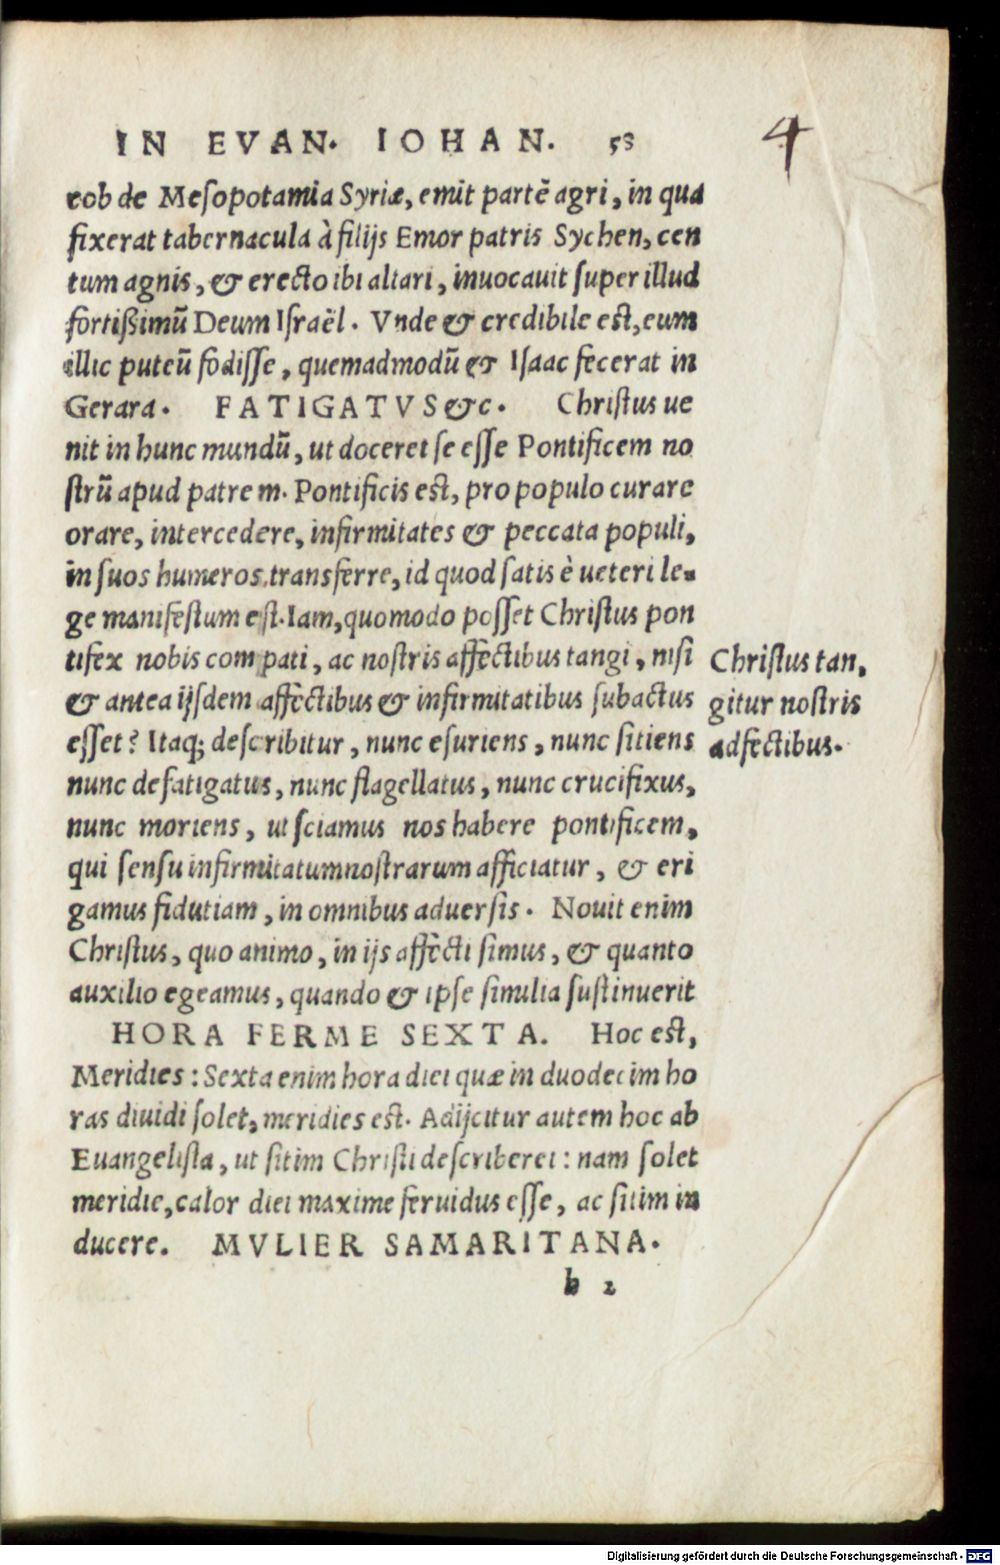 IN EVAN. IOHAN. 58
4
cob de Mesopotamia Syriæ, emit partē agri, in qua
fixerat tabernacula à filijs Emor patris Sychen, cen
tum agnis, & erecto ibi altari, inuocauit super illud
fortißimũ Deum Israël. Vnde & credibile est, eum
illic puteũ fodisse, quemadmodũ & Isaac fecerat in
Gerara. FATIGATVS &c. Christus ue
nit in hunc mundũ, ut doceret se esse Pontificem no
strũ apud patrem. Pontificis est, pro populo curare
orare, intercedere, infirmitates & peccata populi,
in suos humeros transferre, id quod satis è ueteri le-
ge manifestum est. Iam, quomodo posset Christus pon
tifex nobis compati, ac nostris affectibus tangi, nisi
& antea ijsdem affectibus & infirmitatibus subactus
esset? Itaq; describitur, nunc esuriens, nunc sitiens
nunc defatigatus, nunc flagellatus, nunc crucifixus,
nunc moriens, ut sciamus nos habere pontificem,
qui sensu infirmitatum nostrarum afficiatur, & eri
gamus fidutiam, in omnibus aduersis. Nouit enim
Christus, quo animo, in ijs affecti simus, & quanto
auxilio egeamus, quando & ipse similia sustinuerit
HORA FERME SEXTA. Hoc est,
Meridies: Sexta enim hora diei quæ in duodecim ho
ras diuidi solet, meridies est. Adijcitur autem hoc ab
Euangelista, ut sitim Christi describeret: nam solet
meridie, calor diei maxime feruidus esse, ac sitim in
ducere. MVLIER SAMARITANA.
h 2
Christus tan,
gitur nostris
adfectibus.
Digitalisierung gefördert durch die Deutsche Forschungsgemeinschaft - DFG